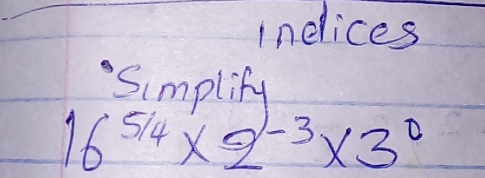 indices
Simplify
16^5/4 × 2^-3 × 3^0